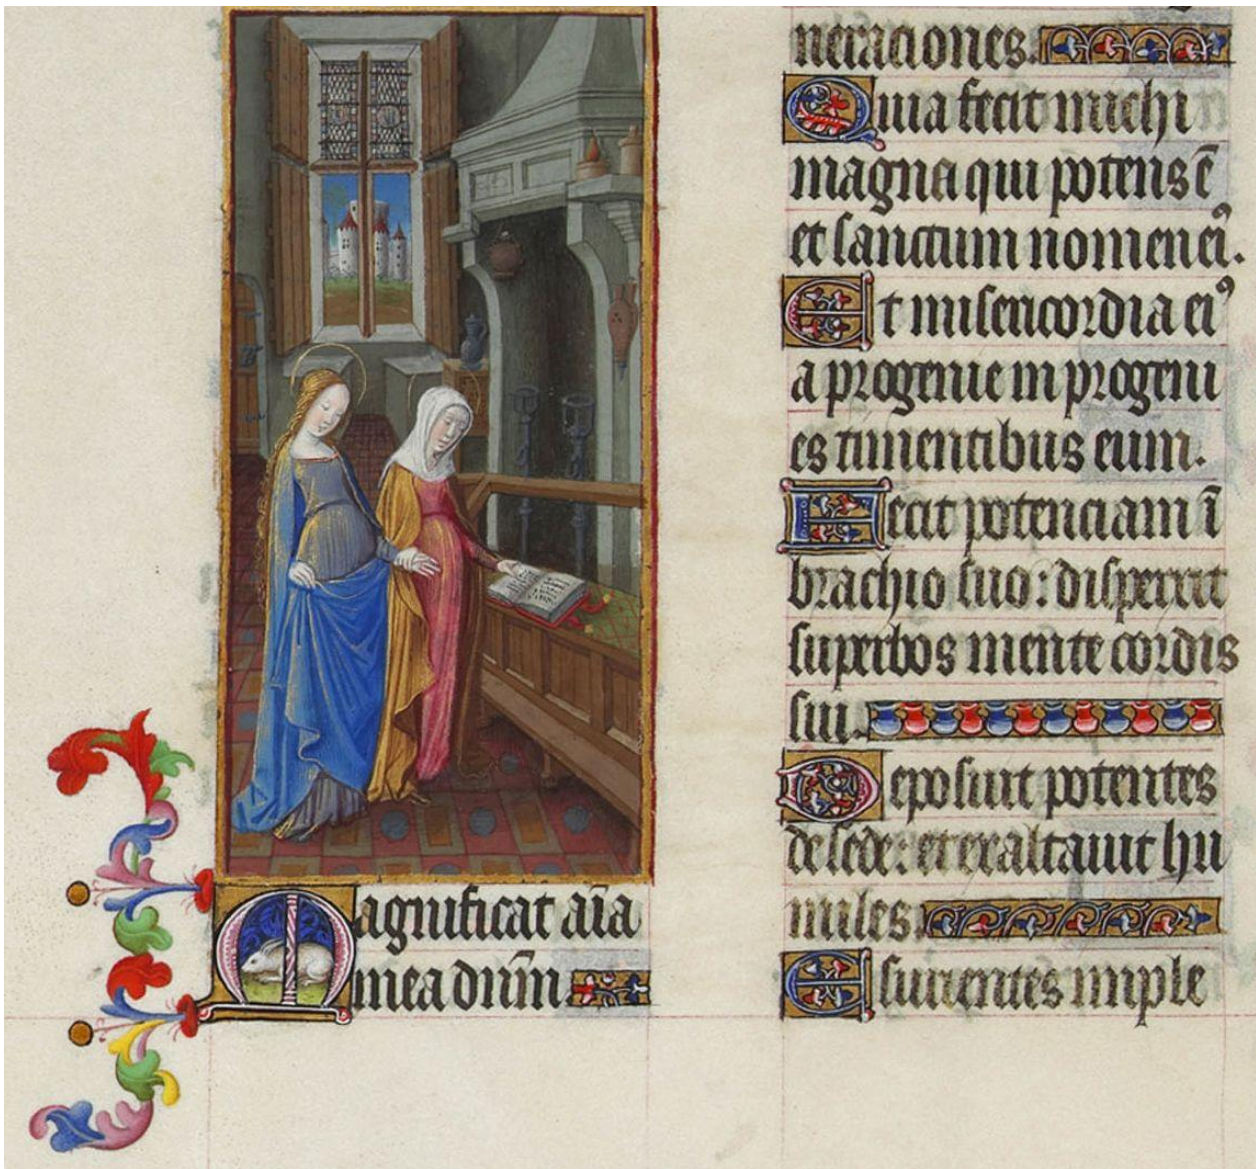 Magnificat aīa
mea dn̄m
neraciones.
Quia fecit michi
magna qui potens ē
et sanctum nomen eiꝰ.
Et misericordia eiꝰ
a progenie in progeni
es timentibus eum.
Fecit potenciam ī
brachio suo: dispersit
superbos mente cordis
sui.
Deposuit potentes
de sede: et exaltauit hu
miles.
Esurientes imple